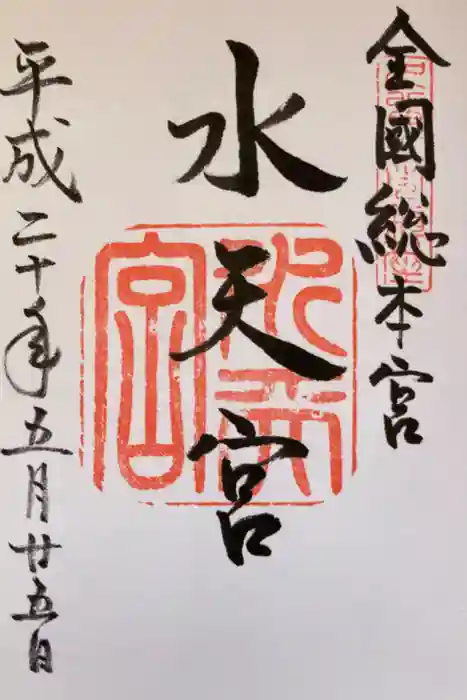 全國総本宮
水天宮
平成二十年五月廿五日
水天宮